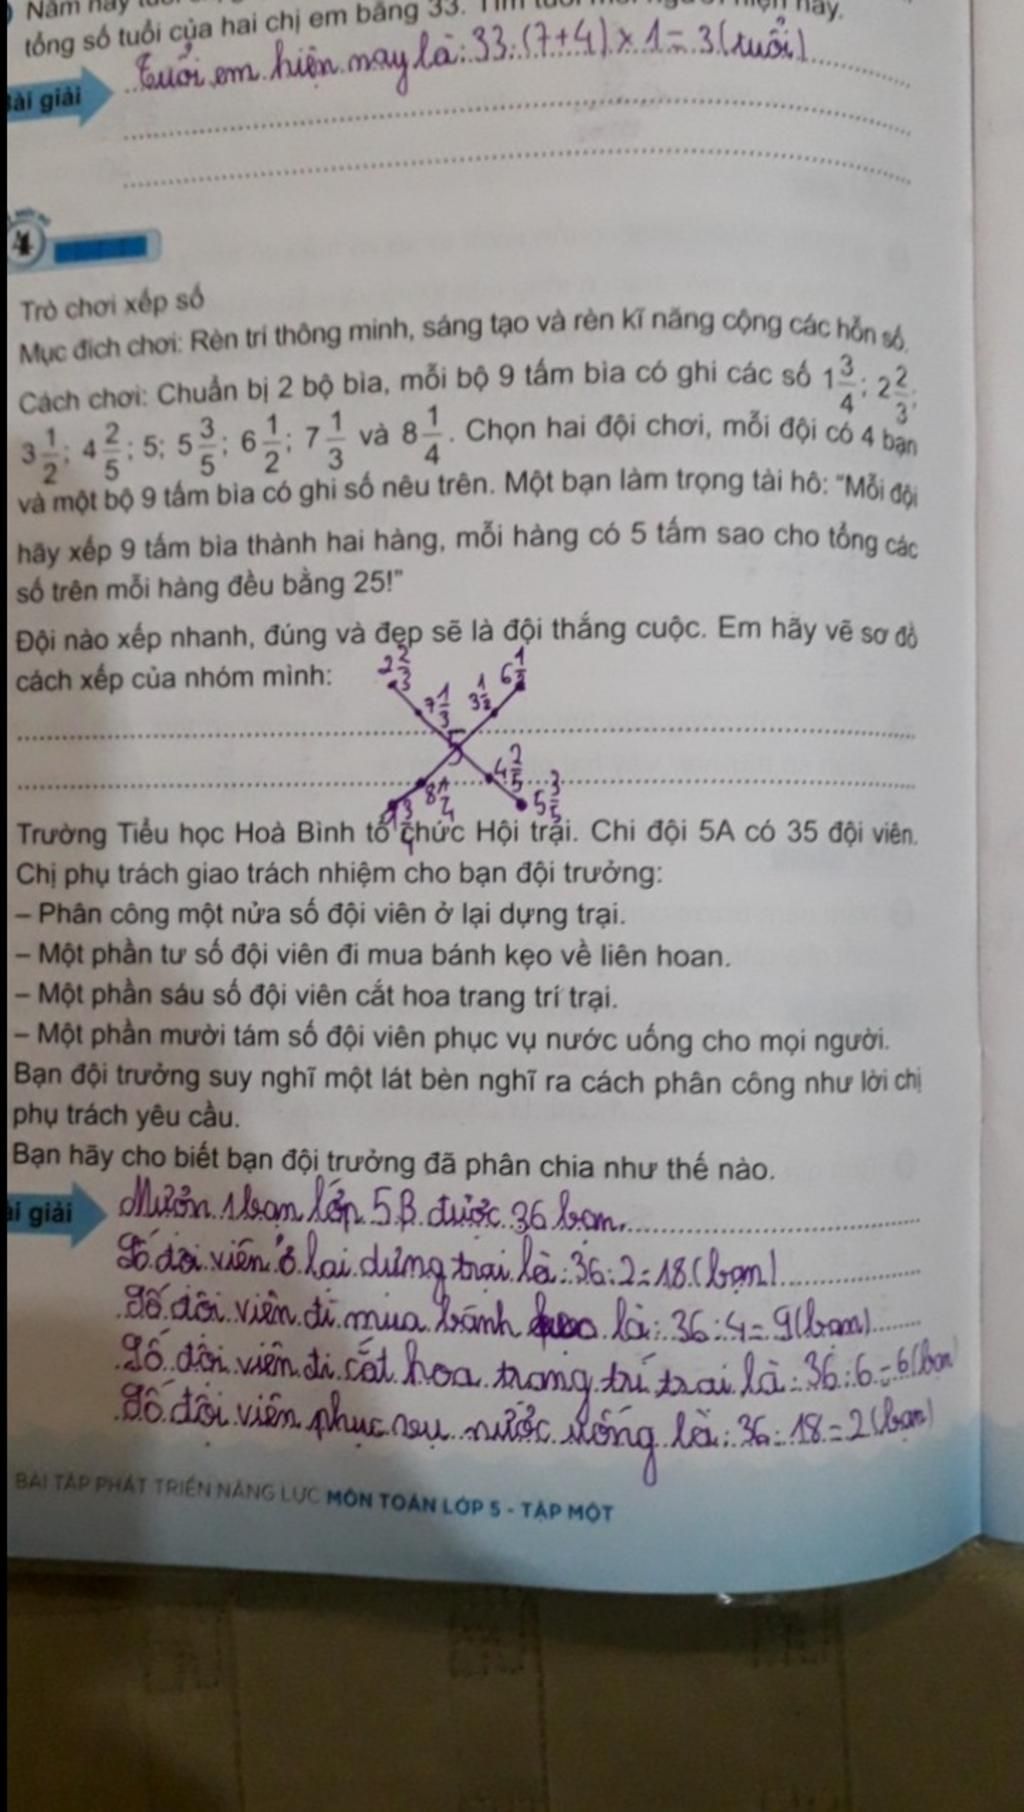 Năm nay
tổng số tuổi của hai chị em bằng 33. nay.
Bài giải
Tuổi em hiện nay là: 33:(7+4) × 1 = 3 (tuổi)
4
Trò chơi xếp số
Mục đích chơi: Rèn trí thông minh, sáng tạo và rèn kĩ năng cộng các hỗn số.
Cách chơi: Chuẩn bị 2 bộ bìa, mỗi bộ 9 tấm bìa có ghi các số 1 3/4; 2 2/3;
3 1/2; 4 2/5; 5; 5 3/5; 6 1/2; 7 1/3 và 8 1/4. Chọn hai đội chơi, mỗi đội có 4 bạn
và một bộ 9 tấm bìa có ghi số nêu trên. Một bạn làm trọng tài hô: "Mỗi đội
hãy xếp 9 tấm bìa thành hai hàng, mỗi hàng có 5 tấm sao cho tổng các
số trên mỗi hàng đều bằng 25!"
Đội nào xếp nhanh, đúng và đẹp sẽ là đội thắng cuộc. Em hãy vẽ sơ đồ
cách xếp của nhóm mình:
2 2/3 6 1/2
7 1/3 3 1/2
5
8 1/4 4 2/5
1 3/4 5 3/5
Trường Tiểu học Hoà Bình tổ chức Hội trại. Chi đội 5A có 35 đội viên.
Chị phụ trách giao trách nhiệm cho bạn đội trưởng:
– Phân công một nửa số đội viên ở lại dựng trại.
– Một phần tư số đội viên đi mua bánh kẹo về liên hoan.
– Một phần sáu số đội viên cắt hoa trang trí trại.
– Một phần mười tám số đội viên phục vụ nước uống cho mọi người.
Bạn đội trưởng suy nghĩ một lát bèn nghĩ ra cách phân công như lời chị
phụ trách yêu cầu.
Bạn hãy cho biết bạn đội trưởng đã phân chia như thế nào.
ài giải
Mượn 1 bạn lớp 5B được 36 bạn.
Số đội viên ở lại dựng trại là: 36:2=18 (bạn)
Số đội viên đi mua bánh là: 36:4=9 (bạn)
Số đội viên đi cắt hoa trang trí trại là: 36:6=6 (bạn
Số đội viên phục vụ nước uống là: 36:18=2 (bạn)
BÀI TẬP PHÁT TRIỂN NĂNG LỰC MÔN TOÁN LỚP 5 - TẬP MỘT